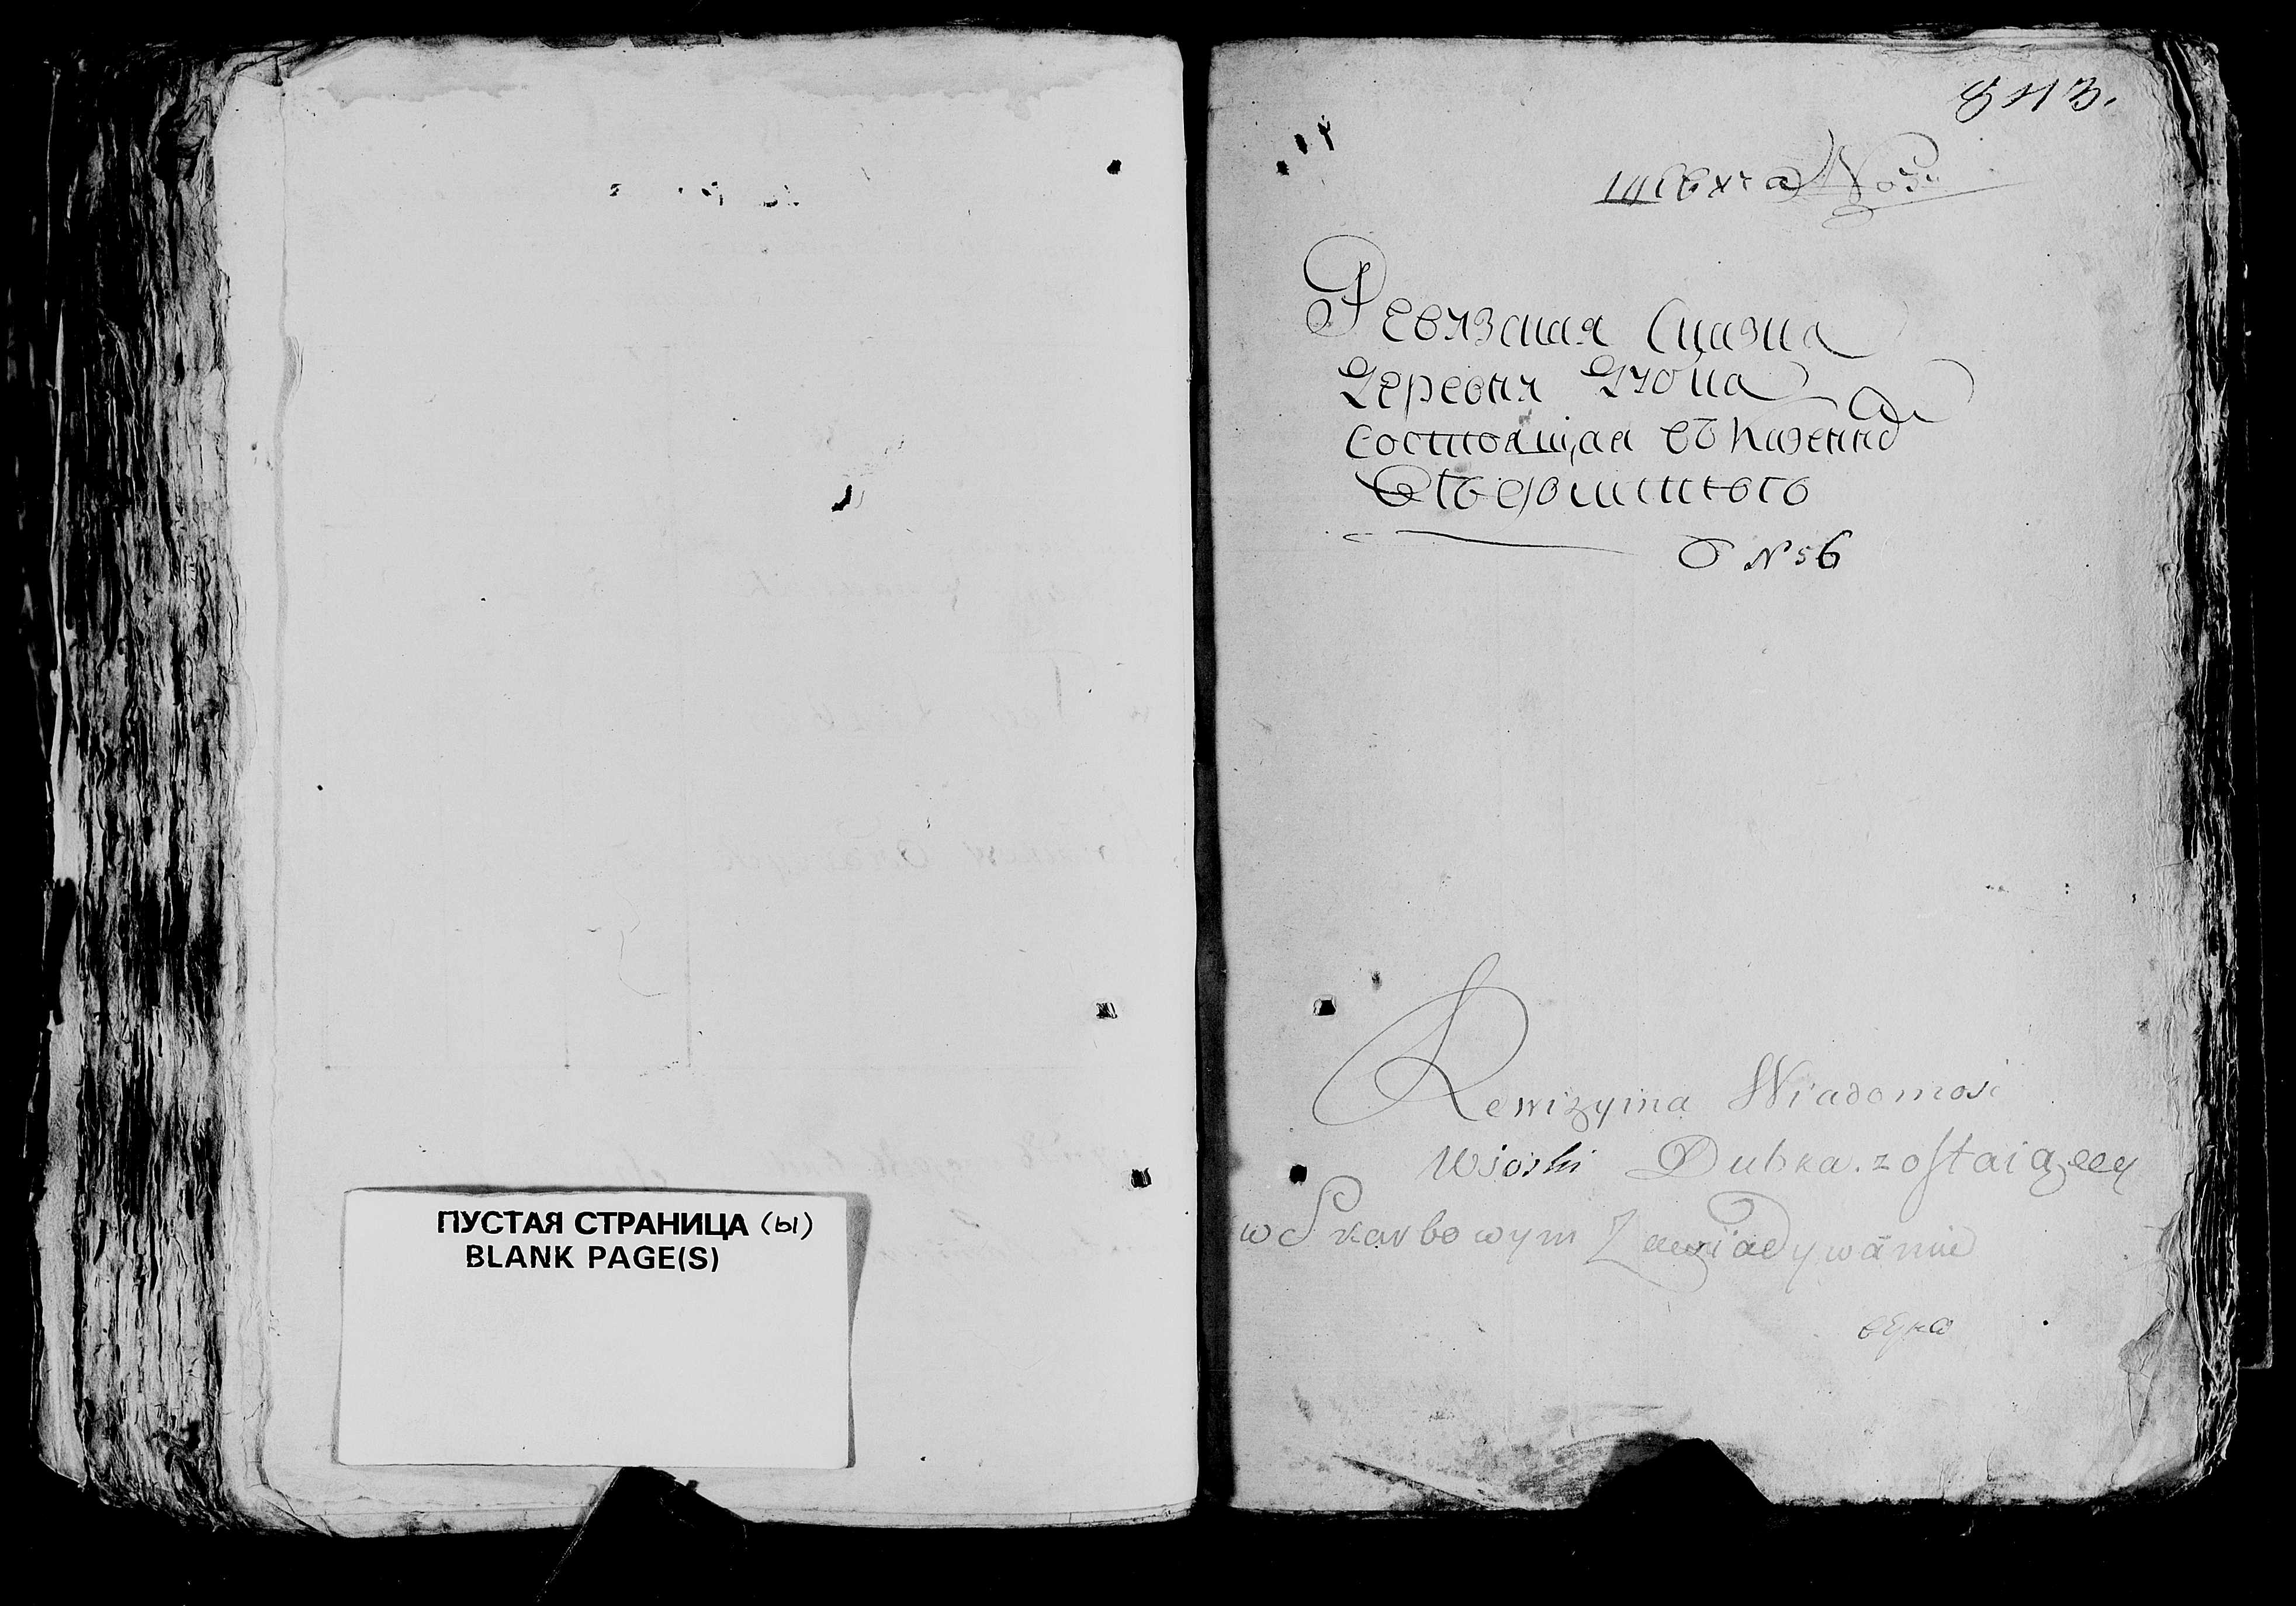 ПУСТАЯ СТРАНИЦА (ы)
BLANK PAGE(S)
843.
Ревизская Сказка
Деревни Дубка
состоящая въ казенно
Ведомстве
№ 56
Rewizyina Wiadomosć
Wioski Dubka zostaiącey
w Skarbowym Zawiadywaniu